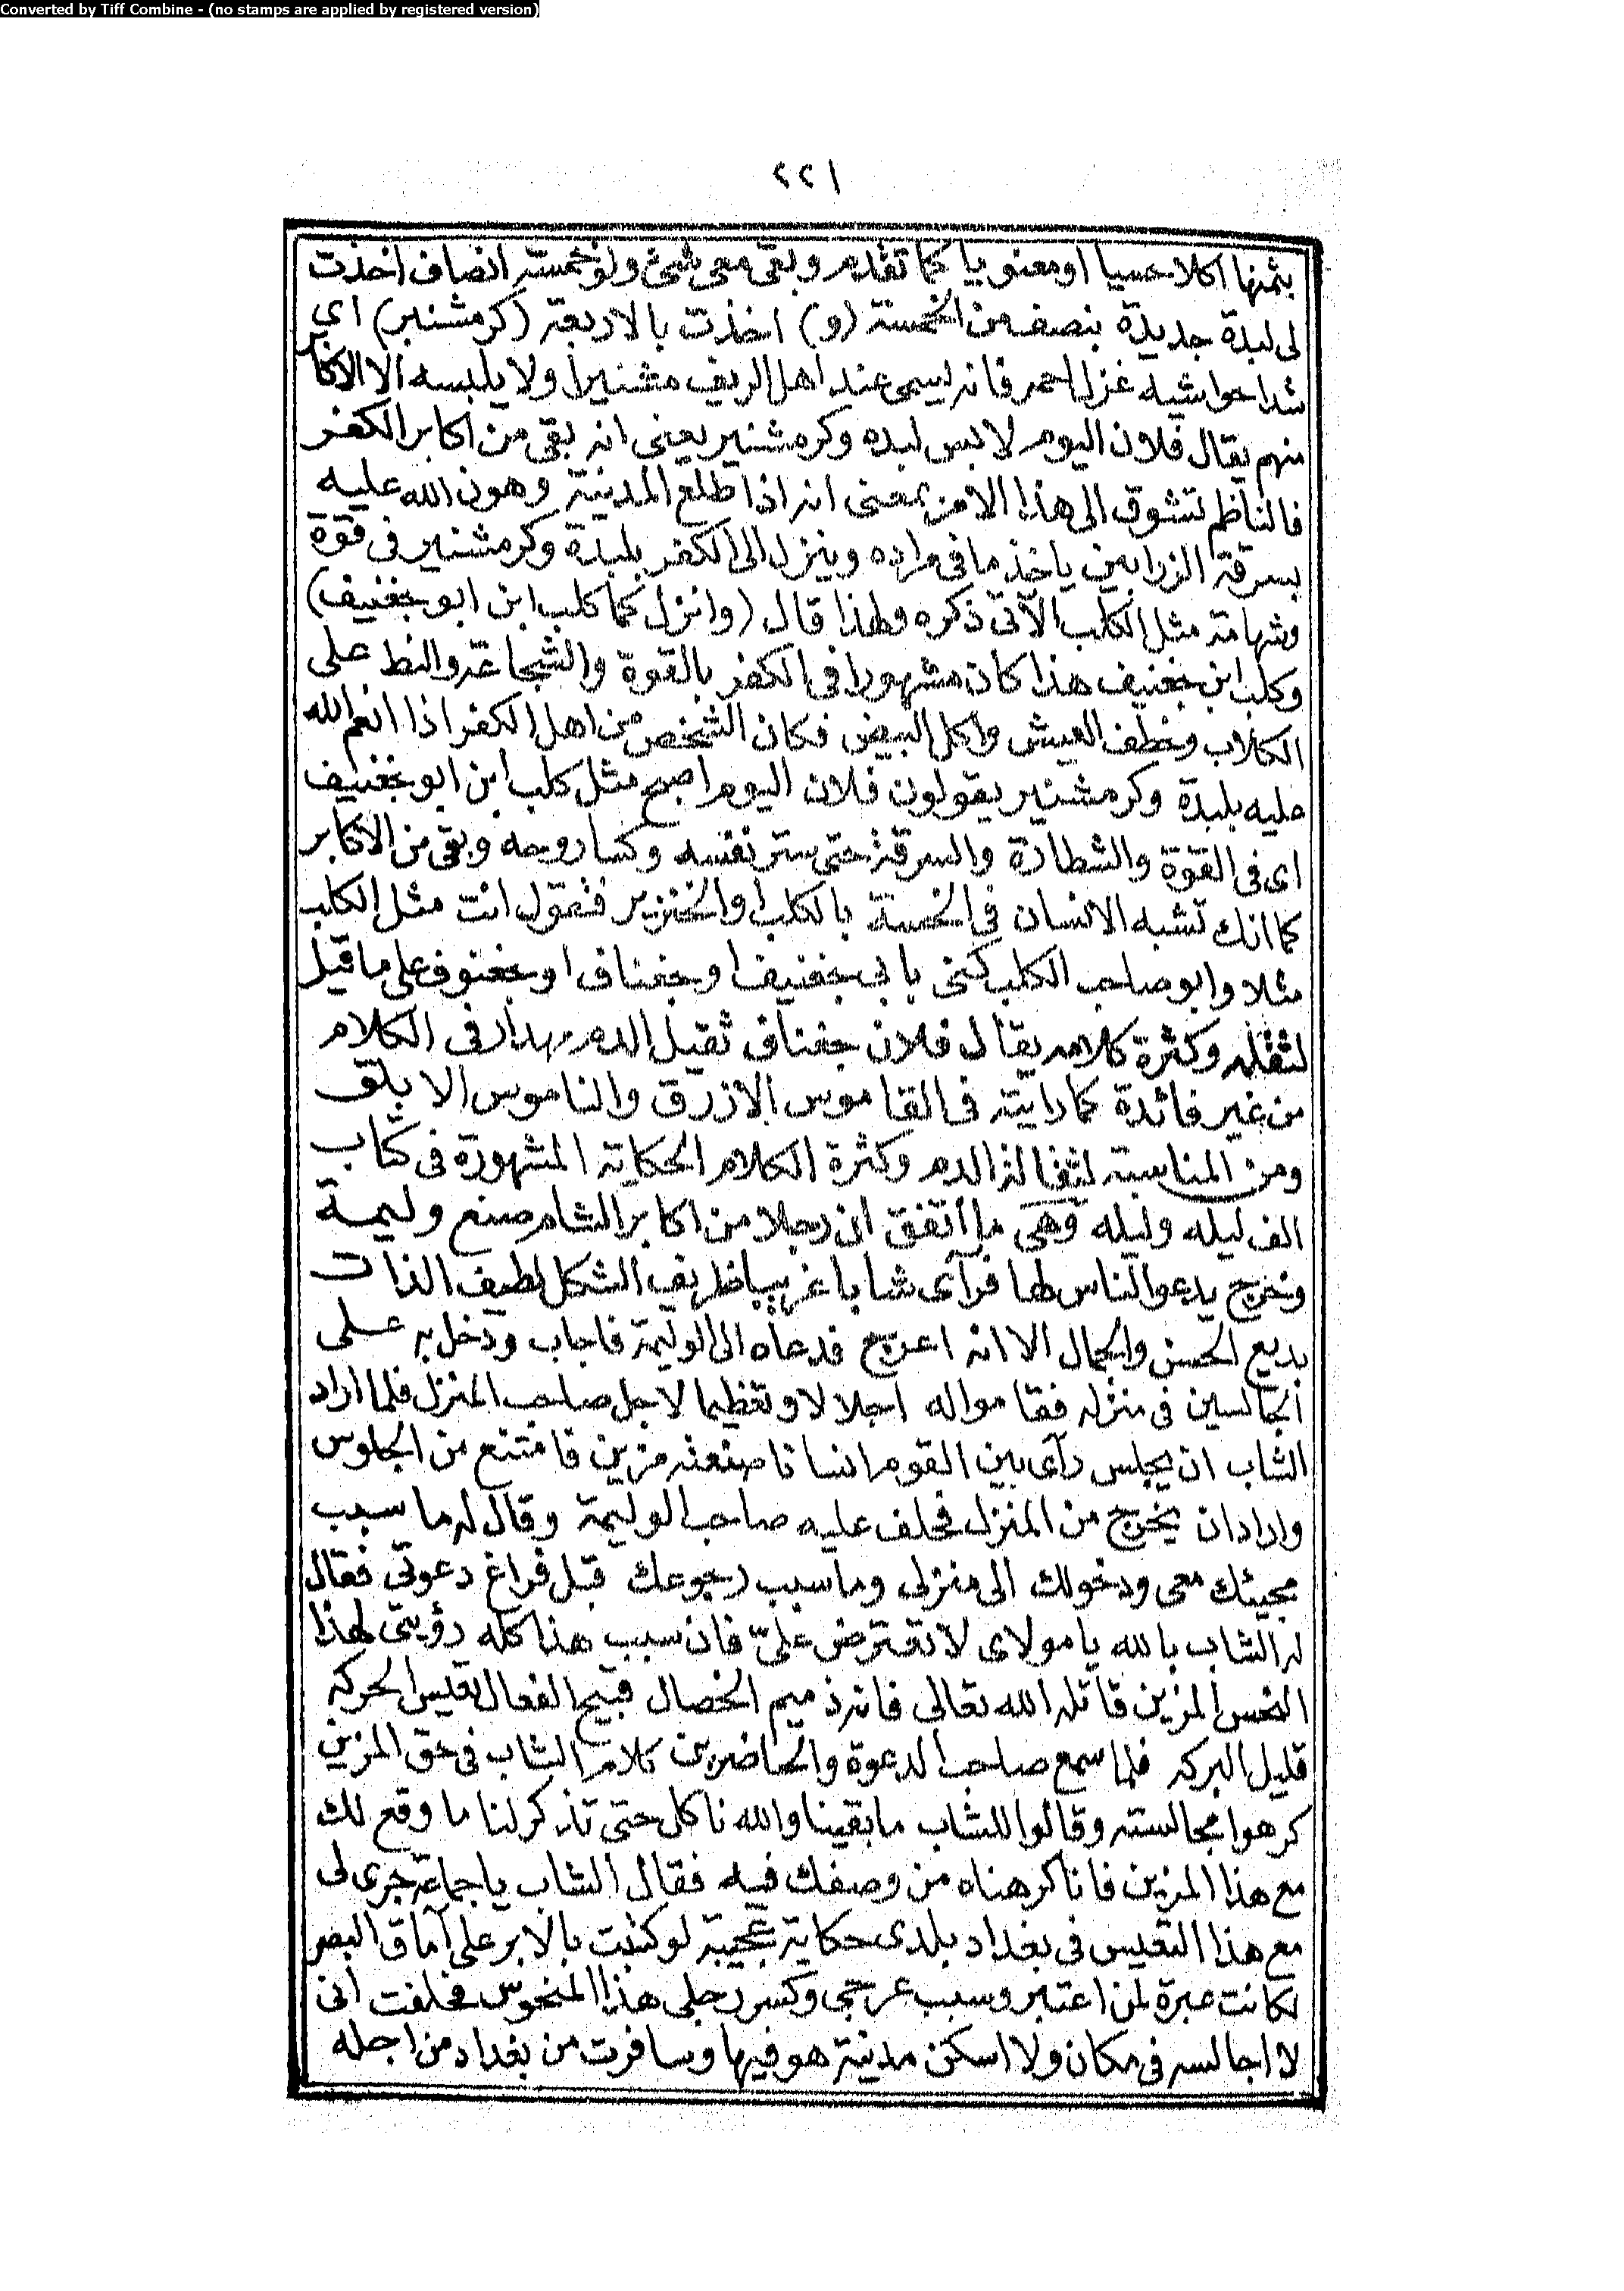 Converted by Tiff Combine - (no stamps are applied by registered version)
٢٢١
بثمنها اكلا حسيا او معنويا كما تقدم وبقى معى شئ ولو خمسة انصاف اخذت
لى لبدة جديدة بنصف من الخمسة (و) اخذت بالاربعة (كرمشنير) اى
شدا حواشيه غزل احمر فانه يسمى عند اهل الريف مشنيرا ولا يلبسه الا الاكابر
منهم يقال فلان اليوم لابس لبده وكرمشنير يعنى انه بقى من اكابر الكفر
فالناظم تشوق الى هذا الامر بمعنى انه اذا طلع المدينة وهون الله عليه
بسرقة الزرابين ياخذ ما فى مراده وينزل الى الكفر بلبدة وكرمشنير فى قوة
وشهامة مثل الكلب الآتى ذكره ولهذا قال (وانزل كما كلب ابن ابو جغنيف)
وكلب ابن جغنيف هذا كان مشهورا فى الكفر بالقوة والشجاعة والنط على
الكلاب وخطف العيش واكل البيض فكان الشخص من اهل الكفر اذا انعم الله
عليه بلبدة وكرمشنير يقولون فلان اليوم اصبح مثل كلب ابن ابو جغنيف
اى فى القوة والشطارة والسرقة حتى ستر نفسه وكسا روحه وبقى من الاكابر
كما انك تشبه الانسان فى الخسة بالكلب او الخنزير فتقول انت مثل الكلب
مثلا وابو صاحب الكلب كنى بابى جغنيف او جغناف او جغنوف على ما قيل
لثقله وكثرة كلامه يقال فلان جغناف ثقيل الدم يهدار فى الكلام
من غير فائدة كما رايته فى القاموس الازرق والناموس الابلق
ومن المناسبة لثقالة الدم وكثرة الكلام الحكاية المشهورة فى كتاب
الف ليله وليله وهى ما أتفق ان رجلا من اكابر الشام صنع وليمة
وخرج يدعو الناس لها فرآى شابا غريبا ظريف الشكل لطيف الذات
بديع الحسن والجمال الا انه اعرج فدعاه الى الوليمة فاجاب ودخل به على
الجالسين فى منزله فقاموا له اجلالا وتعظيما لاجل صاحب المنزل فلما اراد
الشاب ان يجلس رآى بين القوم انسانا صنعته مزين فامتنع من الجلوس
واراد ان يخرج من المنزل فحلف عليه صاحب الوليمة وقال له ما سبب
مجيئك معى ودخولك الى منزلى وما سبب رجوعك قبل فراغ دعوتى فقال
له الشاب بالله يا مولاى لا تعترض علىّ فان سبب هذا كله رؤيتى لهذا
النحس المزين قاتله الله تعالى فانه ذميم الخصال قبيح الفعال تعيس الحركه
قليل البركه فلما سمع صاحب الدعوة والحاضرين كلام الشاب فى حق المزين
كرهوا مجالسته وقالوا للشاب ما بقينا والله ناكل حتى تذكر لنا ما وقع لك
مع هذا المزين فانا كرهناه من وصفك فيه فقال الشاب يا جماعة جرى لى
مع هذا التعيس فى بغداد بلدى حكاية عجيبة لو كتبت بالابر على آماق البصر
لكانت عبرة لمن اعتبر وسبب عرجى وكسر رجلى هذا المنحوس فحلفت انى
لا اجالسه فى مكان ولا اسكن مدينة هو فيها وسافرت من بغداد من اجله